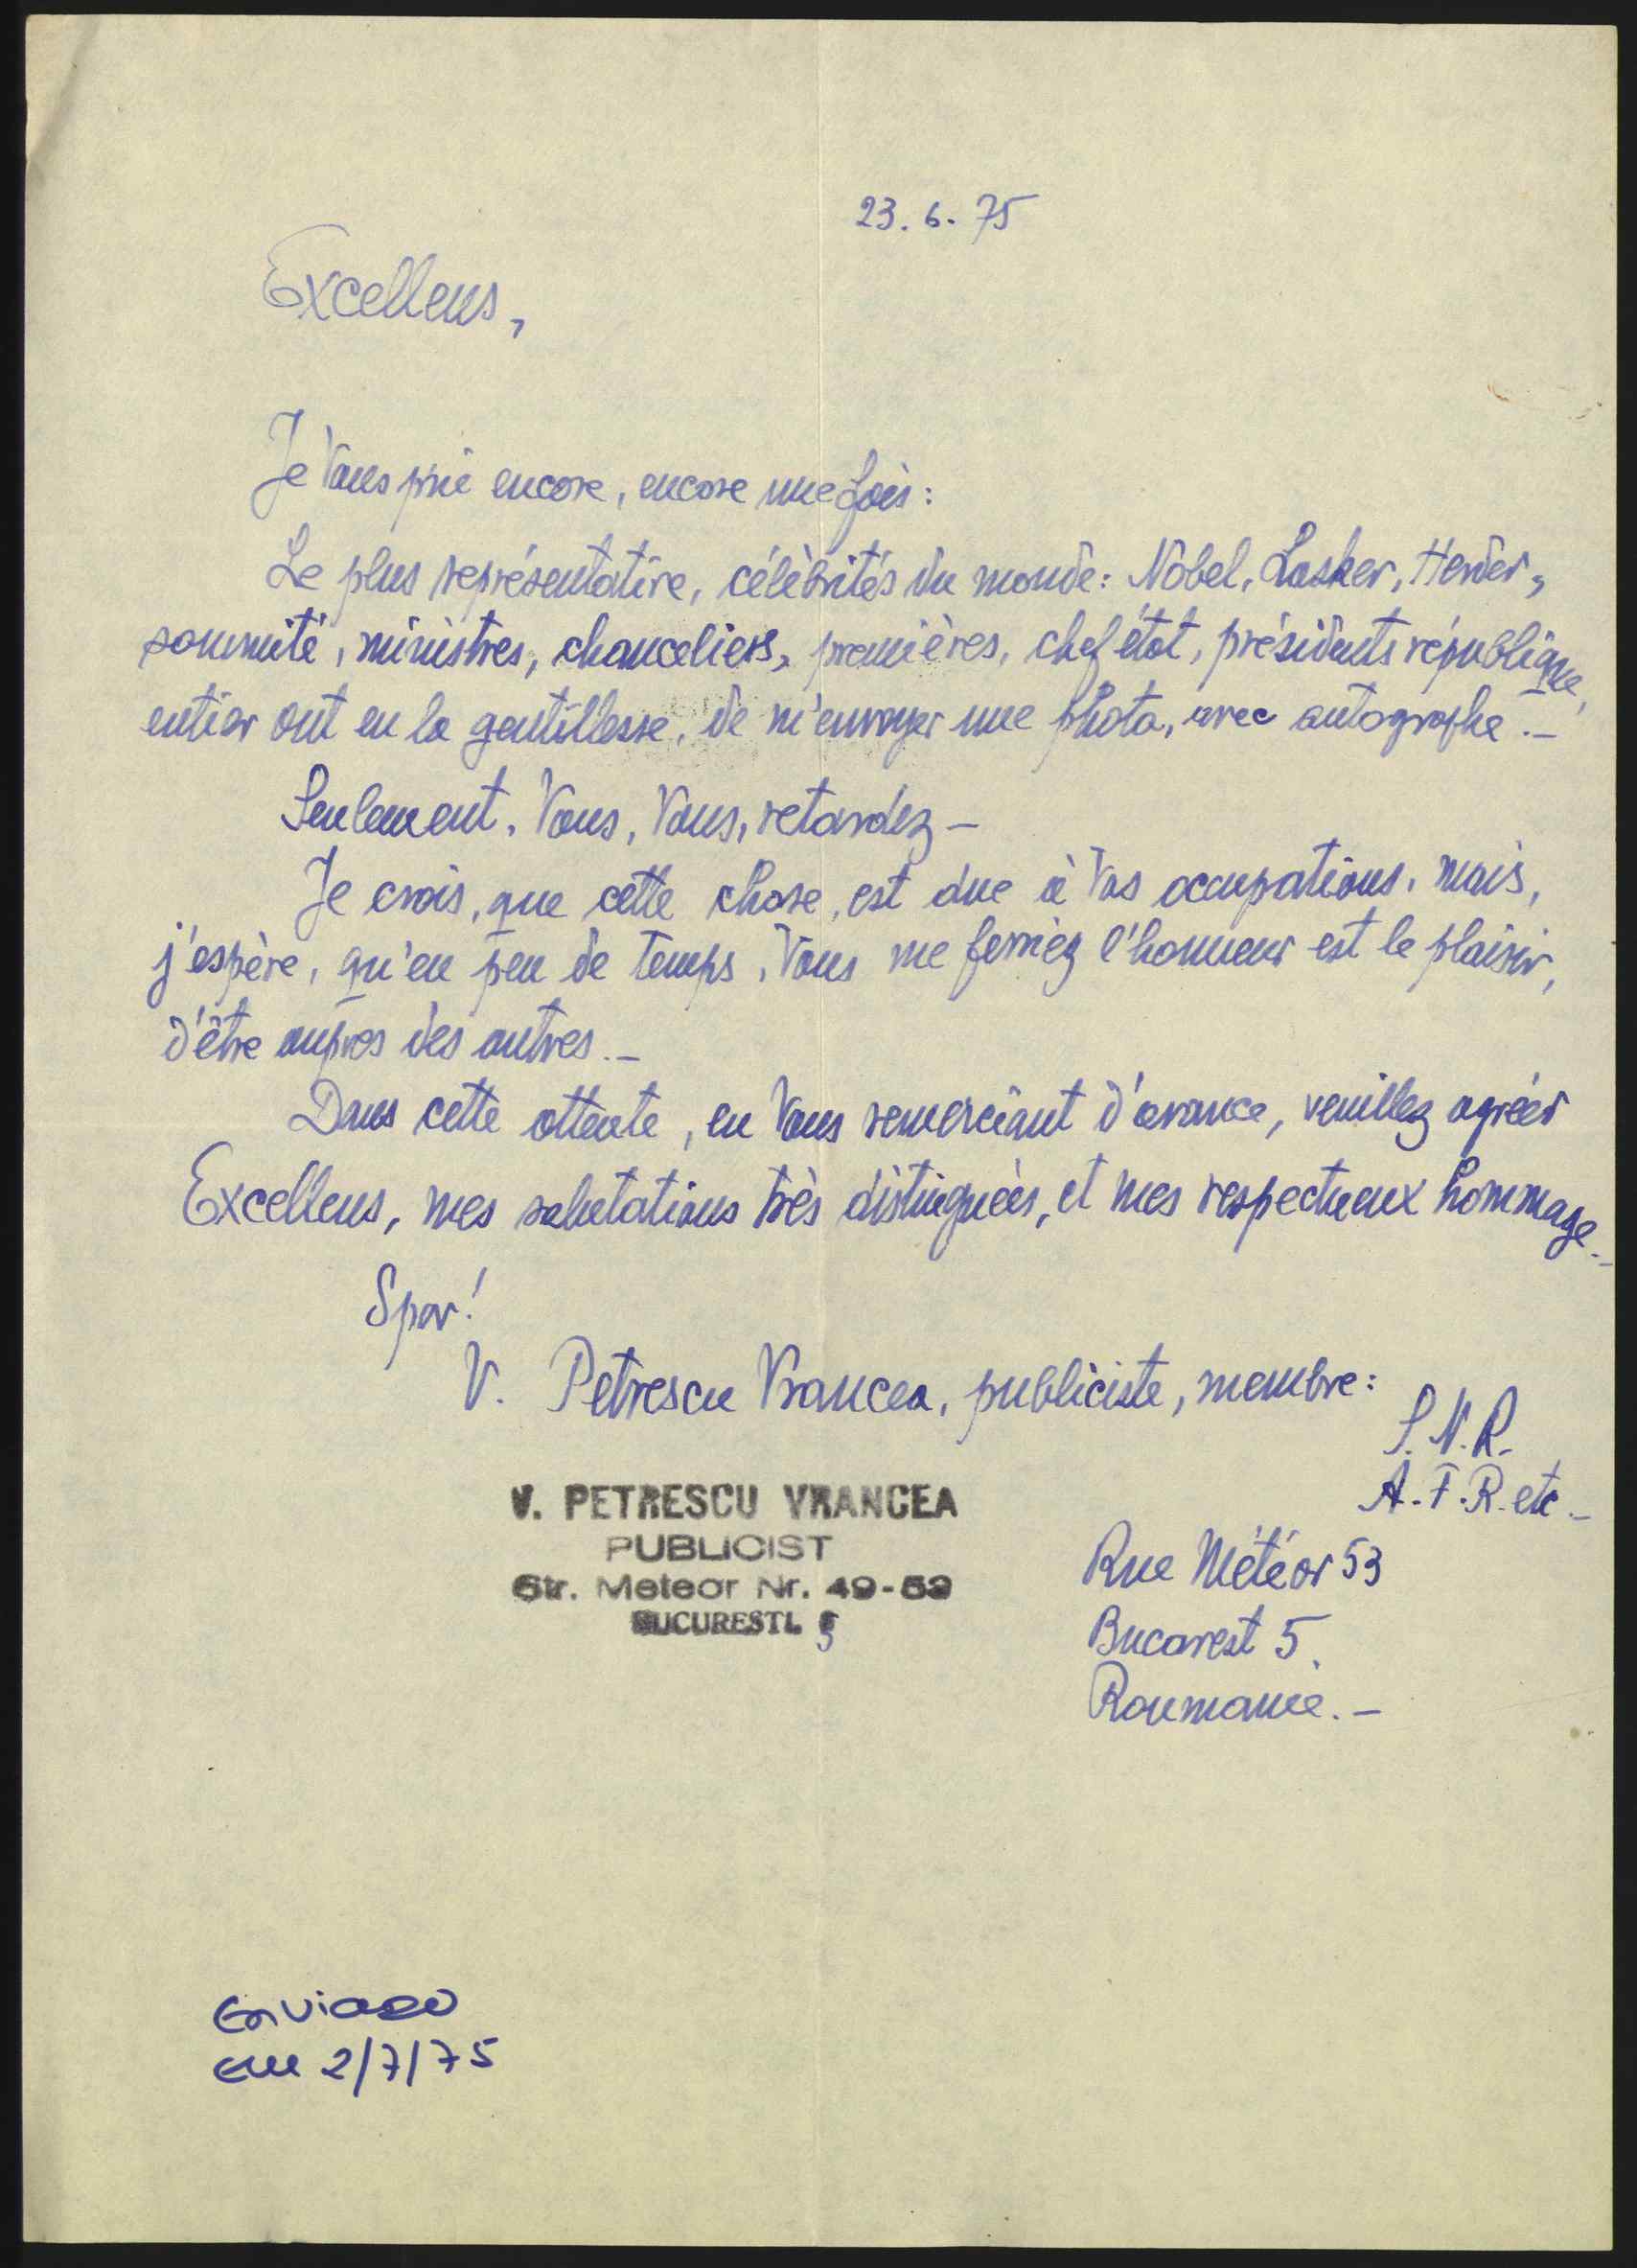 23. 6. 75
Excellens,
Je Vous prie encore, encore une fois :
Le plus représentative, célèbrités du monde: Nobel, Lasker, Herder,
sommité, ministres, chanceliers, premières, chef état, présidents république,
entier ont eu la gentillesse, de m'envoyer une photo, avec autographe.-
Seulement, Vous, Vous, retardez -
Je crois, que cette chose, est due à Vos occupations, mais,
j'espère, qu'en peu de temps, Vous me ferriez l'honneur est le plaisir,
d'être aupres des autres.-
Dans cette attente, en Vous remerciant d'avance, veuillez agréer
Excellens, mes salutations très distinguées, et mes respectueux hommage.-
Spor!
V. Petrescu Vrancea, publiciste, membre:
S.N.R.
A.F.R. etc -
V. PETRESCU VRANCEA
PUBLICIST
Str. Meteor Nr. 49-53
BUCURESTI. 5
Rue Météor 53
Bucarest 5.
Roumanie.-
Enviado
em 2/7/75